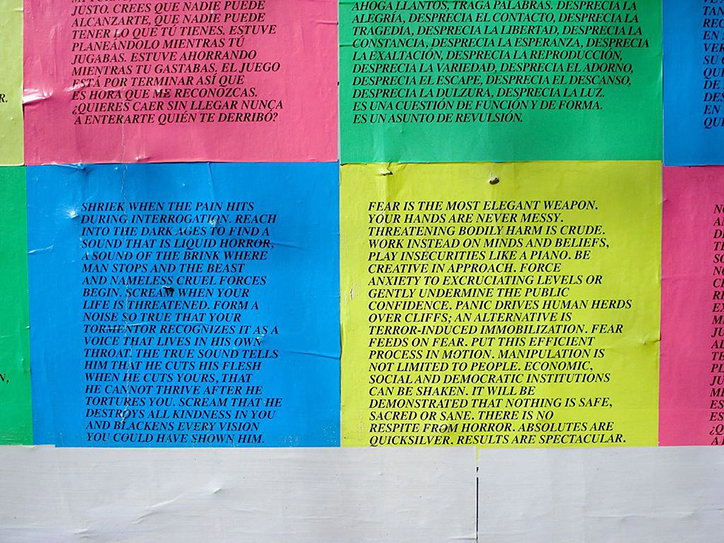 JUSTO. CREES QUE NADIE PUEDE
ALCANZARTE, QUE NADIE PUEDE
TENER LO QUE TÚ TIENES. ESTUVE
PLANEÁNDOLO MIENTRAS TÚ
JUGABAS. ESTUVE AHORRANDO
MIENTRAS TU GASTABAS. EL JUEGO
ESTÁ POR TERMINAR ASÍ QUE
ES HORA QUE ME RECONOZCAS.
¿QUIERES CAER SIN LLEGAR NUNCA
A ENTERARTE QUIÉN TE DERRIBÓ?
AHOGA LLANTOS, TRAGA PALABRAS. DESPRECIA LA
ALEGRÍA, DESPRECIA EL CONTACTO, DESPRECIA LA
TRAGEDIA, DESPRECIA LA LIBERTAD, DESPRECIA LA
CONSTANCIA, DESPRECIA LA ESPERANZA, DESPRECIA
LA EXALTACIÓN, DESPRECIA LA REPRODUCCIÓN,
DESPRECIA LA VARIEDAD, DESPRECIA EL ADORNO,
DESPRECIA EL ESCAPE, DESPRECIA EL DESCANSO,
DESPRECIA LA DULZURA, DESPRECIA LA LUZ.
ES UNA CUESTIÓN DE FUNCIÓN Y DE FORMA.
ES UN ASUNTO DE REVULSIÓN.
SHRIEK WHEN THE PAIN HITS
DURING INTERROGATION. REACH
INTO THE DARK AGES TO FIND A
SOUND THAT IS LIQUID HORROR,
A SOUND OF THE BRINK WHERE
MAN STOPS AND THE BEAST
AND NAMELESS CRUEL FORCES
BEGIN. SCREAM WHEN YOUR
LIFE IS THREATENED. FORM A
NOISE SO TRUE THAT YOUR
TORMENTOR RECOGNIZES IT AS A
VOICE THAT LIVES IN HIS OWN
THROAT. THE TRUE SOUND TELLS
HIM THAT HE CUTS HIS FLESH
WHEN HE CUTS YOURS, THAT
HE CANNOT THRIVE AFTER HE
TORTURES YOU. SCREAM THAT HE
DESTROYS ALL KINDNESS IN YOU
AND BLACKENS EVERY VISION
YOU COULD HAVE SHOWN HIM.
FEAR IS THE MOST ELEGANT WEAPON.
YOUR HANDS ARE NEVER MESSY.
THREATENING BODILY HARM IS CRUDE.
WORK INSTEAD ON MINDS AND BELIEFS,
PLAY INSECURITIES LIKE A PIANO. BE
CREATIVE IN APPROACH. FORCE
ANXIETY TO EXCRUCIATING LEVELS OR
GENTLY UNDERMINE THE PUBLIC
CONFIDENCE. PANIC DRIVES HUMAN HERDS
OVER CLIFFS; AN ALTERNATIVE IS
TERROR-INDUCED IMMOBILIZATION. FEAR
FEEDS ON FEAR. PUT THIS EFFICIENT
PROCESS IN MOTION. MANIPULATION IS
NOT LIMITED TO PEOPLE. ECONOMIC,
SOCIAL AND DEMOCRATIC INSTITUTIONS
CAN BE SHAKEN. IT WILL BE
DEMONSTRATED THAT NOTHING IS SAFE,
SACRED OR SANE. THERE IS NO
RESPITE FROM HORROR. ABSOLUTES ARE
QUICKSILVER. RESULTS ARE SPECTACULAR.